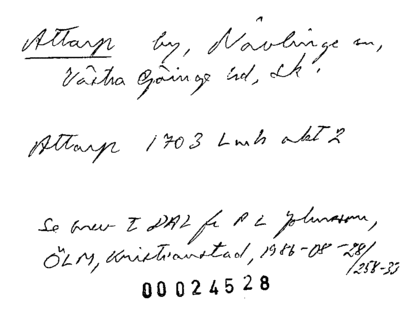 Attarp by, Nävlinge sn,
Västra Göinge hd, Sk.
Attarp 1703 Lmk akt 2
Se brev t DAL fr P L Johnsson,
ÖLM, Kristianstad, 1986-08-28/
/258-33
00024528